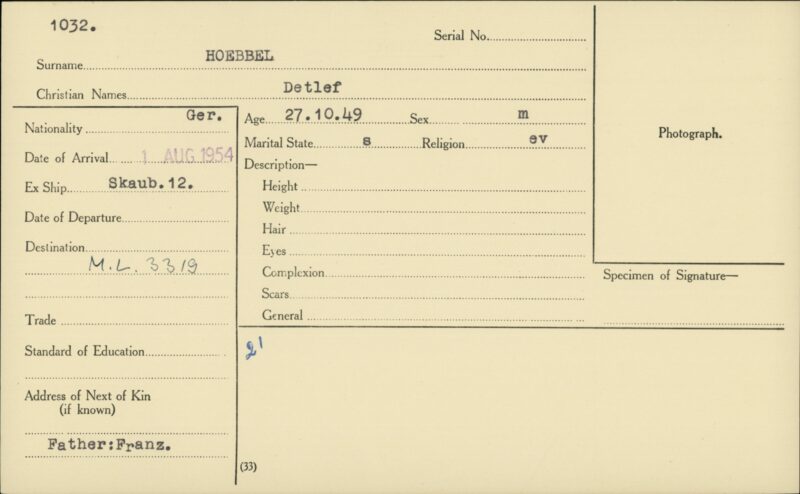 1032.
Serial No.
Surname HOEBBEL
Christian Names Detlef
Nationality Ger.
Date of Arrival 1 AUG 1954
Ex Ship Skaub.12.
Date of Departure
Destination
M.L. 3319
Trade
Standard of Education
Address of Next of Kin
(if known)
Father:Franz.
Age 27.10.49 Sex m
Marital State s Religion ev
Description—
Height
Weight
Hair
Eyes
Complexion
Scars
General
21
(33)
Photograph.
Specimen of Signature—